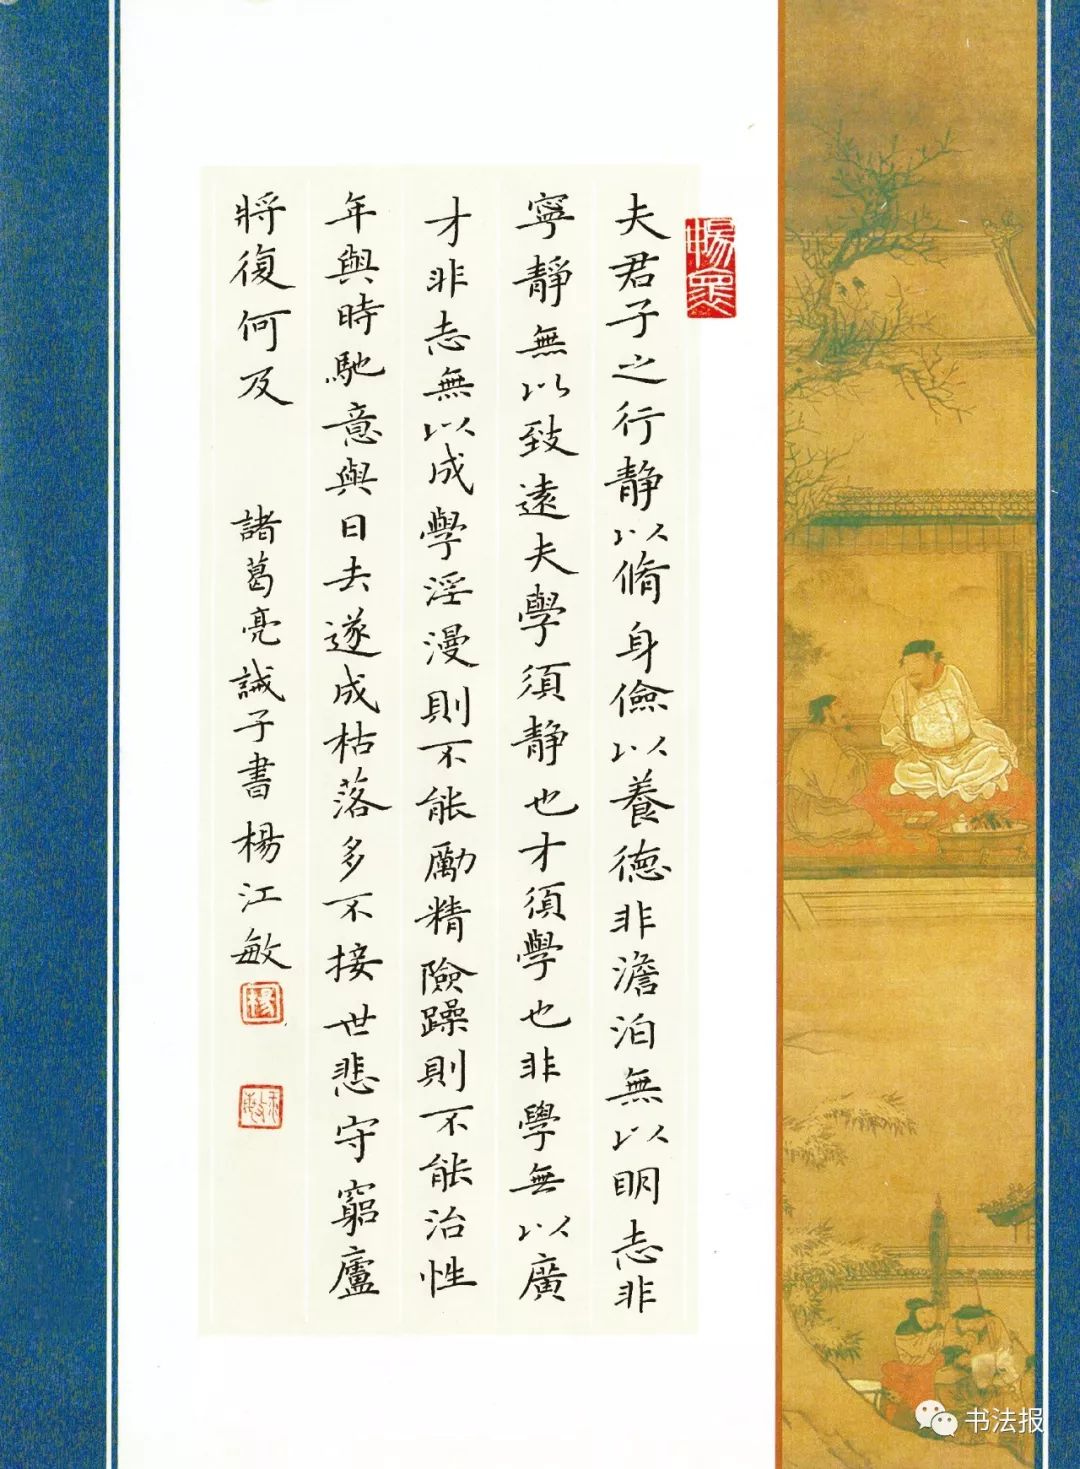 夫君子之行静以脩身儉以養德非澹泊無以明志非
寧靜無以致遠夫學須静也才須學也非學無以廣
才非志無以成學淫漫則不能勵精險躁則不能治性
年與時馳意與日去遂成枯落多不接世悲守窮廬
將復何及
諸葛亮誡子書楊江敏
楊
书法报